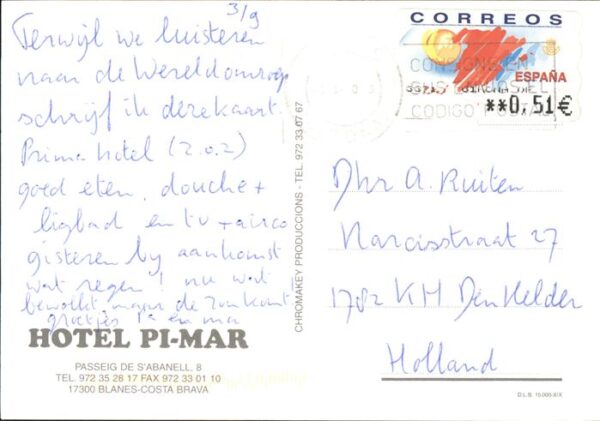 3/9
Terwijl we luisteren
naar de Wereldomroep
schrijf ik deze kaart.
Prima hotel (z.o.z)
goed eten, douche +
ligbad en tv + airco
gisteren bij aankomst
wat regen! nu wat
bewolkt maar de zon komt!
groetjes Pa en ma
HOTEL PI-MAR
PASSEIG DE S'ABANELL, 8
TEL. 972 35 28 17 FAX 972 33 01 10
17300 BLANES-COSTA BRAVA
CHROMAKEY PRODUCCIONS - TEL. 972 33 07 67
CORREOS
ESPAÑA
**0,51€
CONSIGNE EN
SUS ENVIOS EL
CODIGO POSTAL
Dhr A. Ruiten
Narcisstraat 27
1782 KH Den Helder
Holland
D.L.B. 10.000-XIX